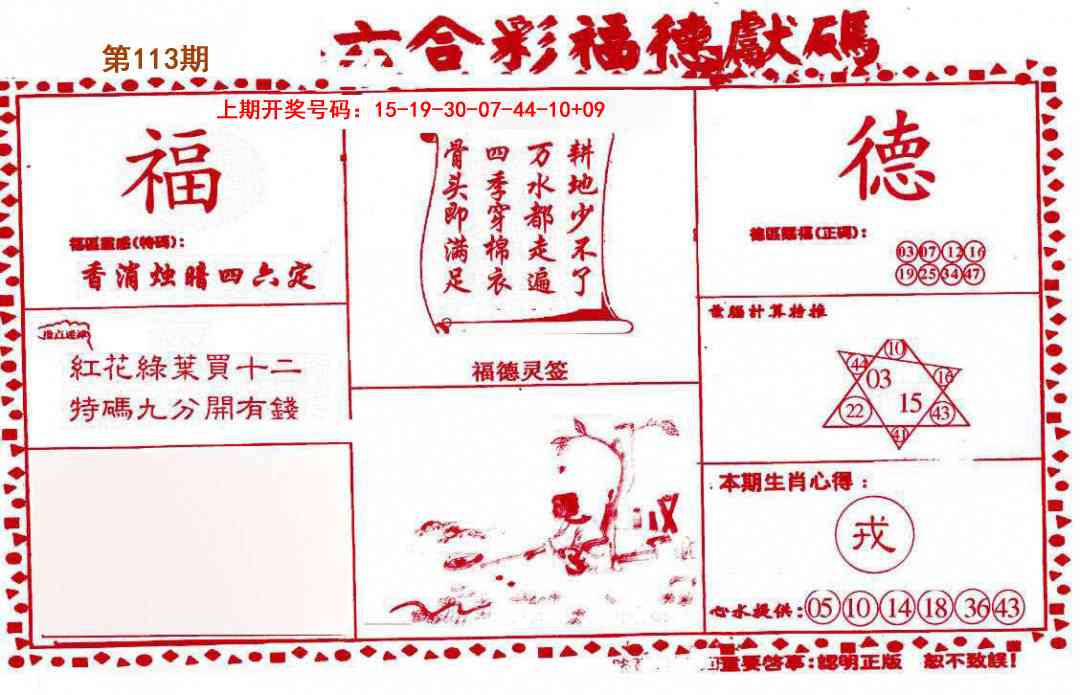 第113期
六合彩福德獻碼
上期开奖号码：15-19-30-07-44-10+09
福
福區靈感(特碼):
香消烛暗四六定
紅花綠葉買十二
特碼九分開有錢
耕地少不了
万水都走遍
四季穿棉衣
骨头即满足
福德灵签
德
德區賜福(正碼):
03 07 12 16
19 25 34 47
電腦計算特推
10
44 03 16
22 15 43
41
本期生肖心得：
戎
心水提供:05 10 14 18 36 43
重要啓事:認明正版 恕不致誤!